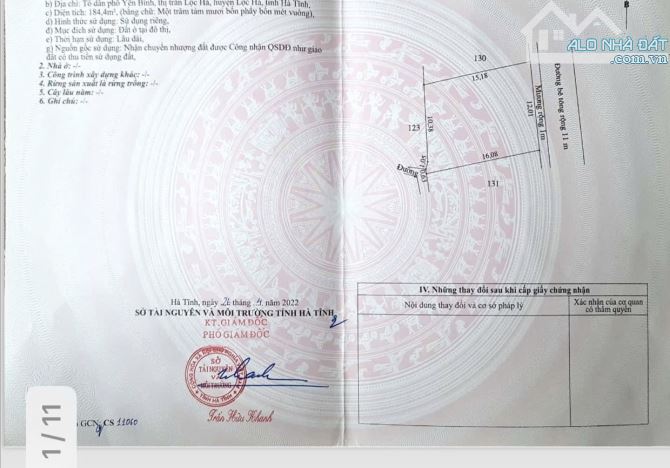 b) Địa chỉ: Tổ dân phố Yên Bình, thị trấn Lộc Hà, huyện Lộc Hà, tỉnh Hà Tĩnh,
c) Diện tích: 184,4m², (bằng chữ: Một trăm tám mươi bốn phẩy bốn mét vuông),
d) Hình thức sử dụng: Sử dụng riêng,
đ) Mục đích sử dụng: Đất ở tại đô thị,
e) Thời hạn sử dụng: Lâu dài,
g) Nguồn gốc sử dụng: Nhận chuyển nhượng đất được Công nhận QSDĐ như giao
đất có thu tiền sử dụng đất,
2. Nhà ở: -/-
3. Công trình xây dựng khác: -/-
4. Rừng sản xuất là rừng trồng: -/-
5. Cây lâu năm: -/-
6. Ghi chú: -/-
Hà Tĩnh, ngày 26 tháng 4 năm 2022
SỞ TÀI NGUYÊN VÀ MÔI TRƯỜNG TỈNH HÀ TĨNH
KT.GIÁM ĐỐC
PHÓ GIÁM ĐỐC
SỞ
TÀI NGUYÊN
VÀ
MÔI TRƯỜNG
TỈNH HÀ TĨNH
Trần Hữu Khanh
GCN: CS 11060
1/11
B
ALO NHÀ ĐẤT
.com.vn
130
15,18
123
10,38
Mương rộng 1m
12,01
Đường bê tông rộng 11 m
16,08
131
Đường
0,63
IV. Những thay đổi sau khi cấp giấy chứng nhận
Nội dung thay đổi và cơ sở pháp lý
Xác nhận của cơ quan
có thẩm quyền